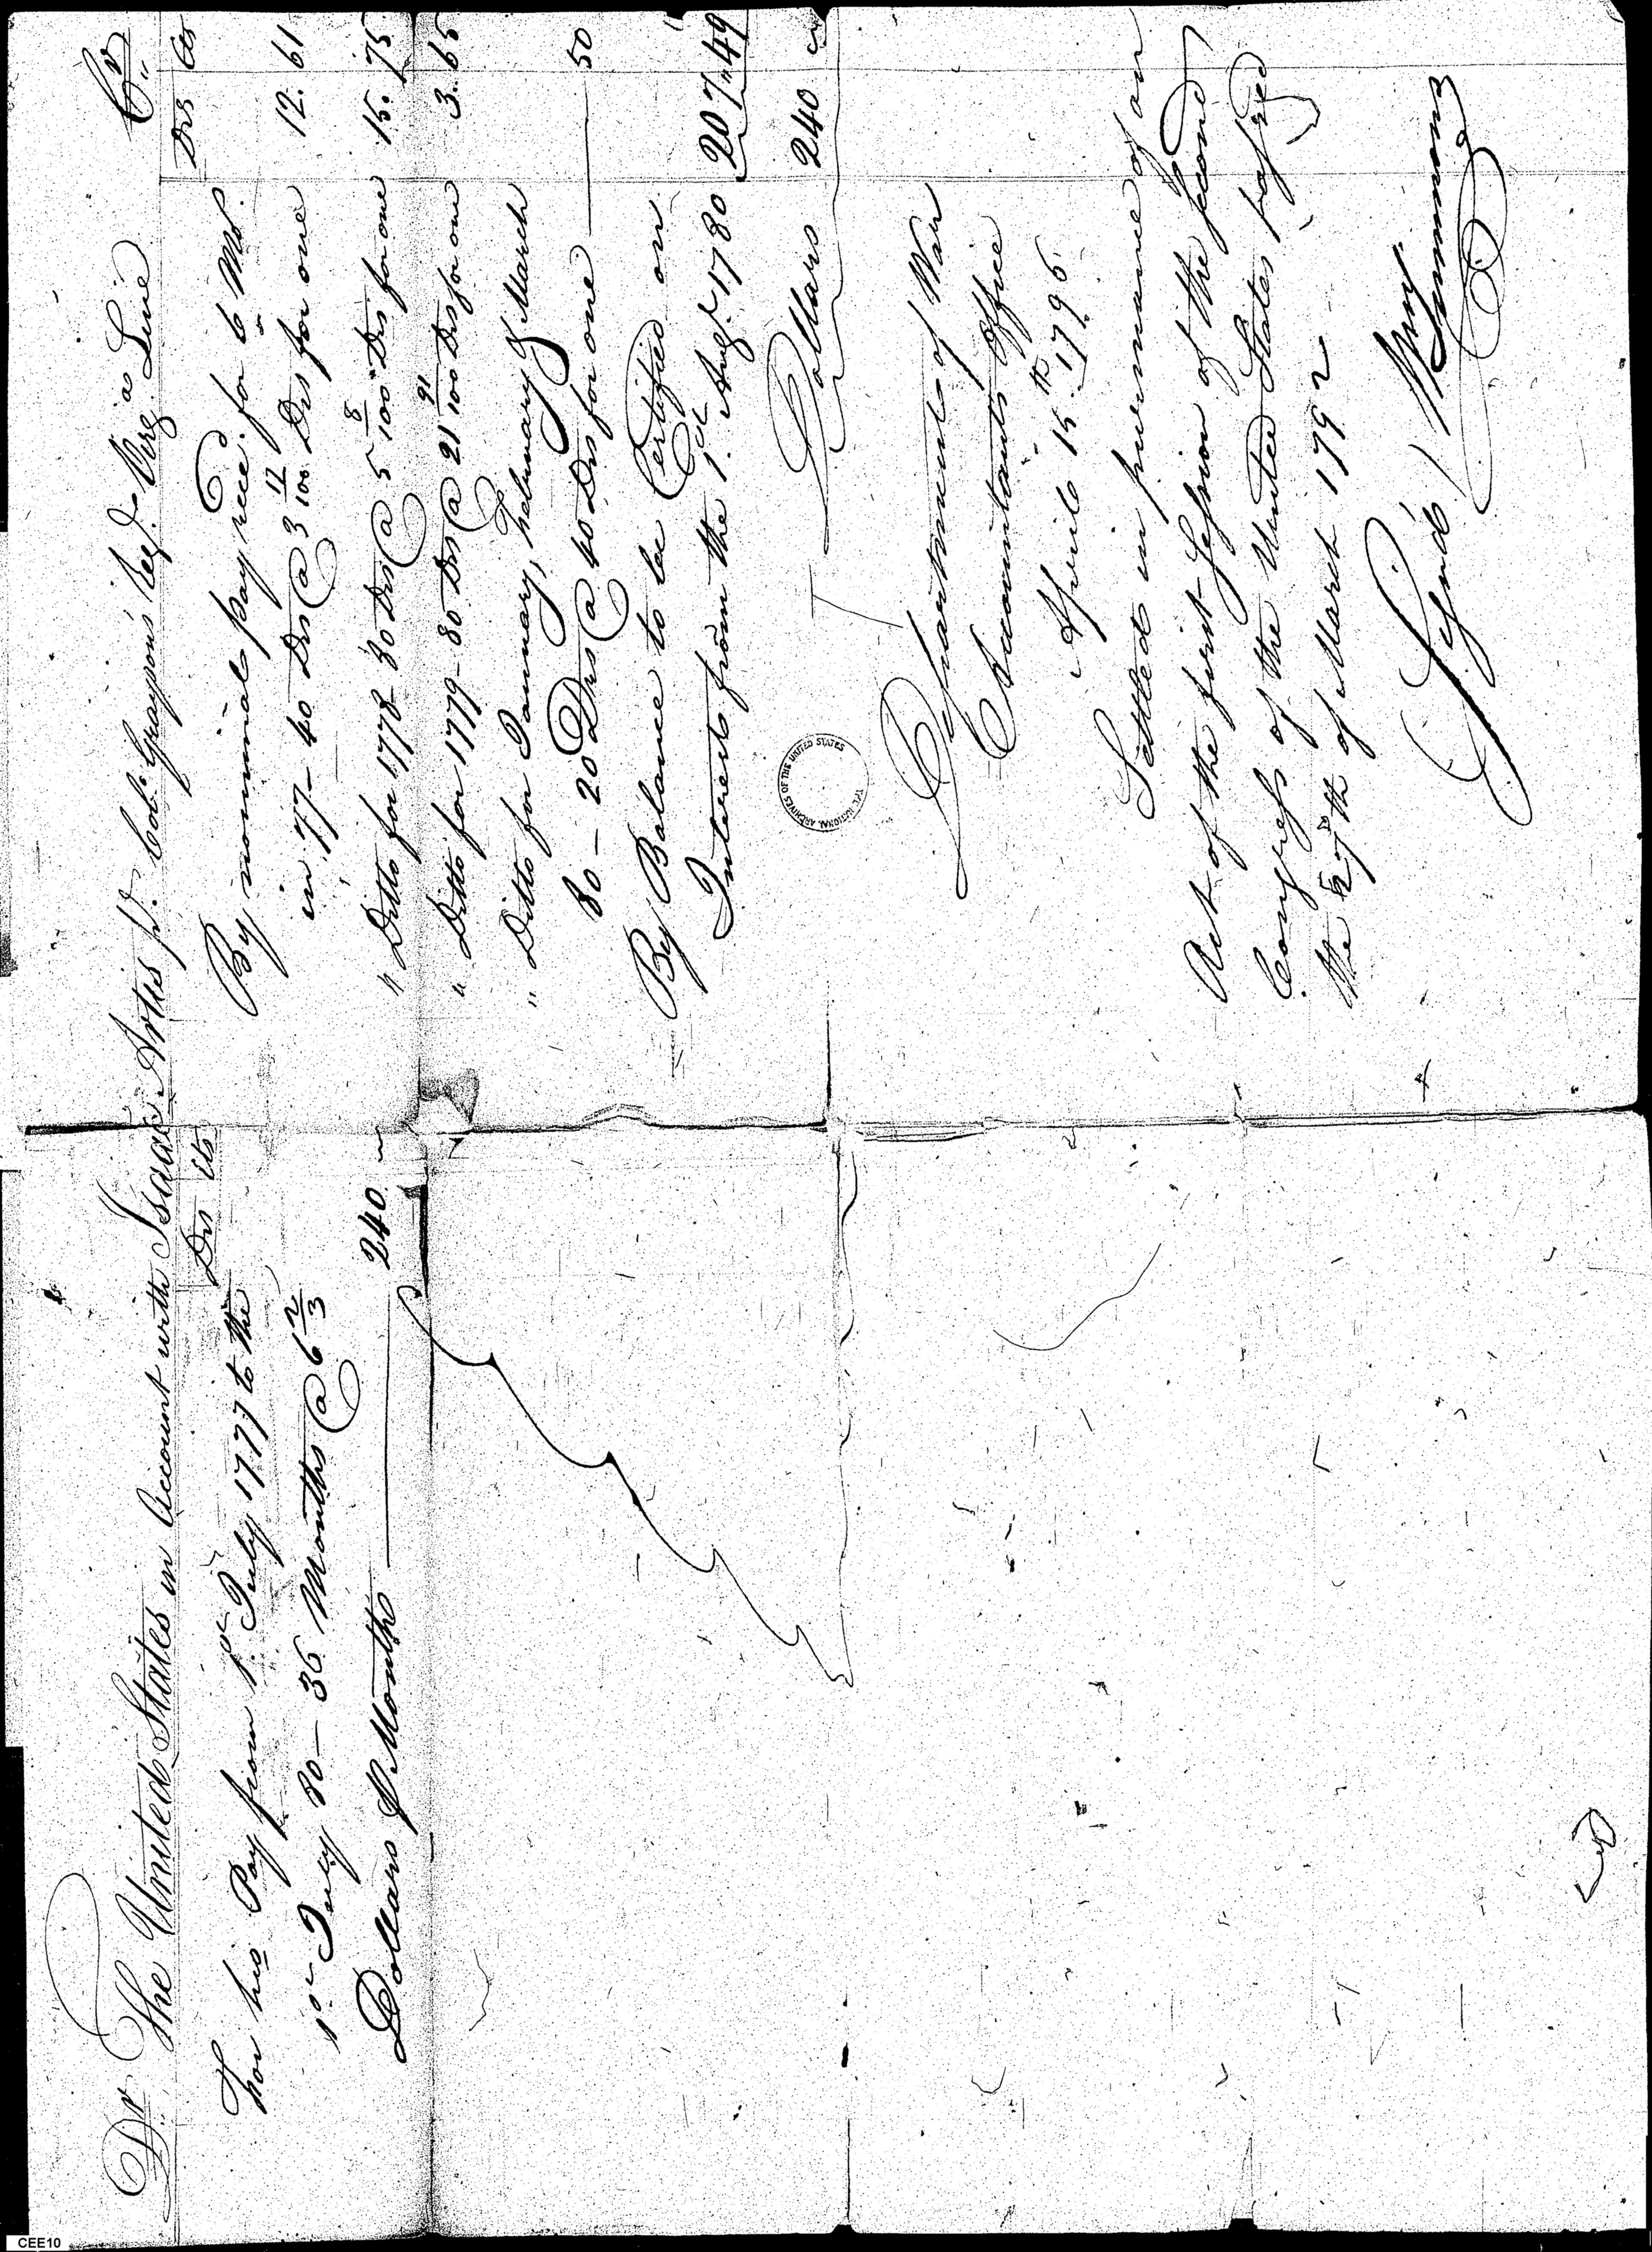 Dr. The United States in Account with Isaac Artis pt. Colo. Graysons Regt. Virga. Line Cr.
Drs Cts
For his Pay from 1st July 1777 to the
1st July 80 – 36 Months @ 6 2/3
Dollars P Month 240
Drs Cts
By nominal pay recd. for 6 Mos.
in 77 – 40 Drs @ 3 17/100 Drs for one 12. 61
" Ditto for 1778 – 80 Drs @ 5 8/100 Drs for one 15. 75
" Ditto for 1779 – 80 Drs @ 21 91/100 Drs for one 3. 65
" Ditto for January, February & March
80 – 20 Drs @ 40 Drs for one 50
By Balance to be Certified on
Interest from the 1st Augt. 1780 207 " 49
Dollars 240
THE NATIONAL ARCHIVES OF THE UNITED STATES
Department of War
Accountants Office
April 15th 1796
Settled in pursuance of an
Act of the first Session of the second
Congress of the United States passed
the 27th of March 1792
Signd. / Wm Simmons
CEE10